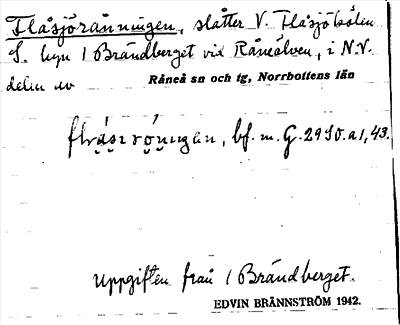 Flåsjörånningen, slåtter V. Flåsjökölen
S. byn / Brändberget vid Råneälven, i N.V.
delen av Råneå sn och tg, Norrbottens län
bf. m. G. 2950. a1, 43.
Uppgiften från / Brändberget.
EDVIN BRÄNNSTRÖM 1942.